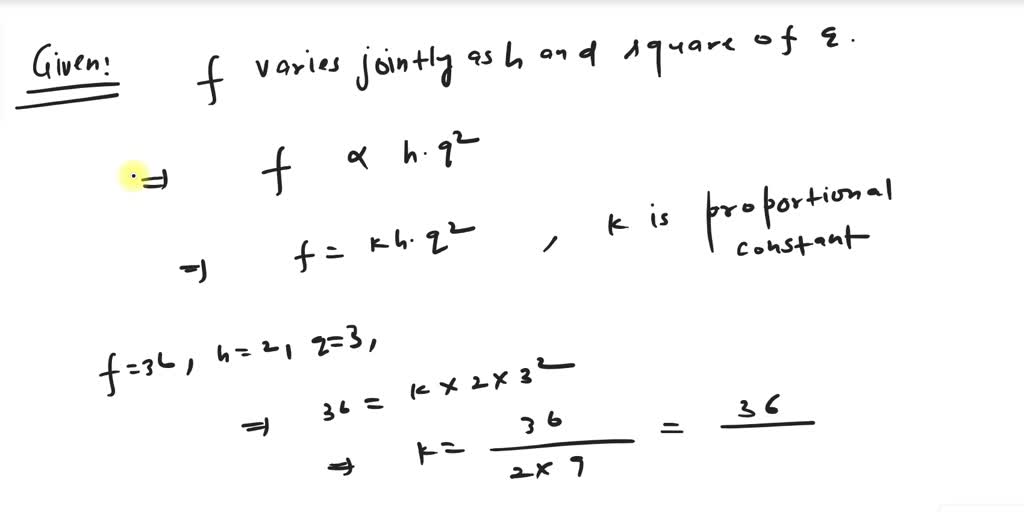 Given: f varies jointly as h and square of q.
⇒ f ∝ h·q²
⇒ f = kh·q² , k is proportional constant
f=36, h=2, q=3,
⇒ 36 = k × 2 × 3²
⇒ k = 36 / 2×9 = 36